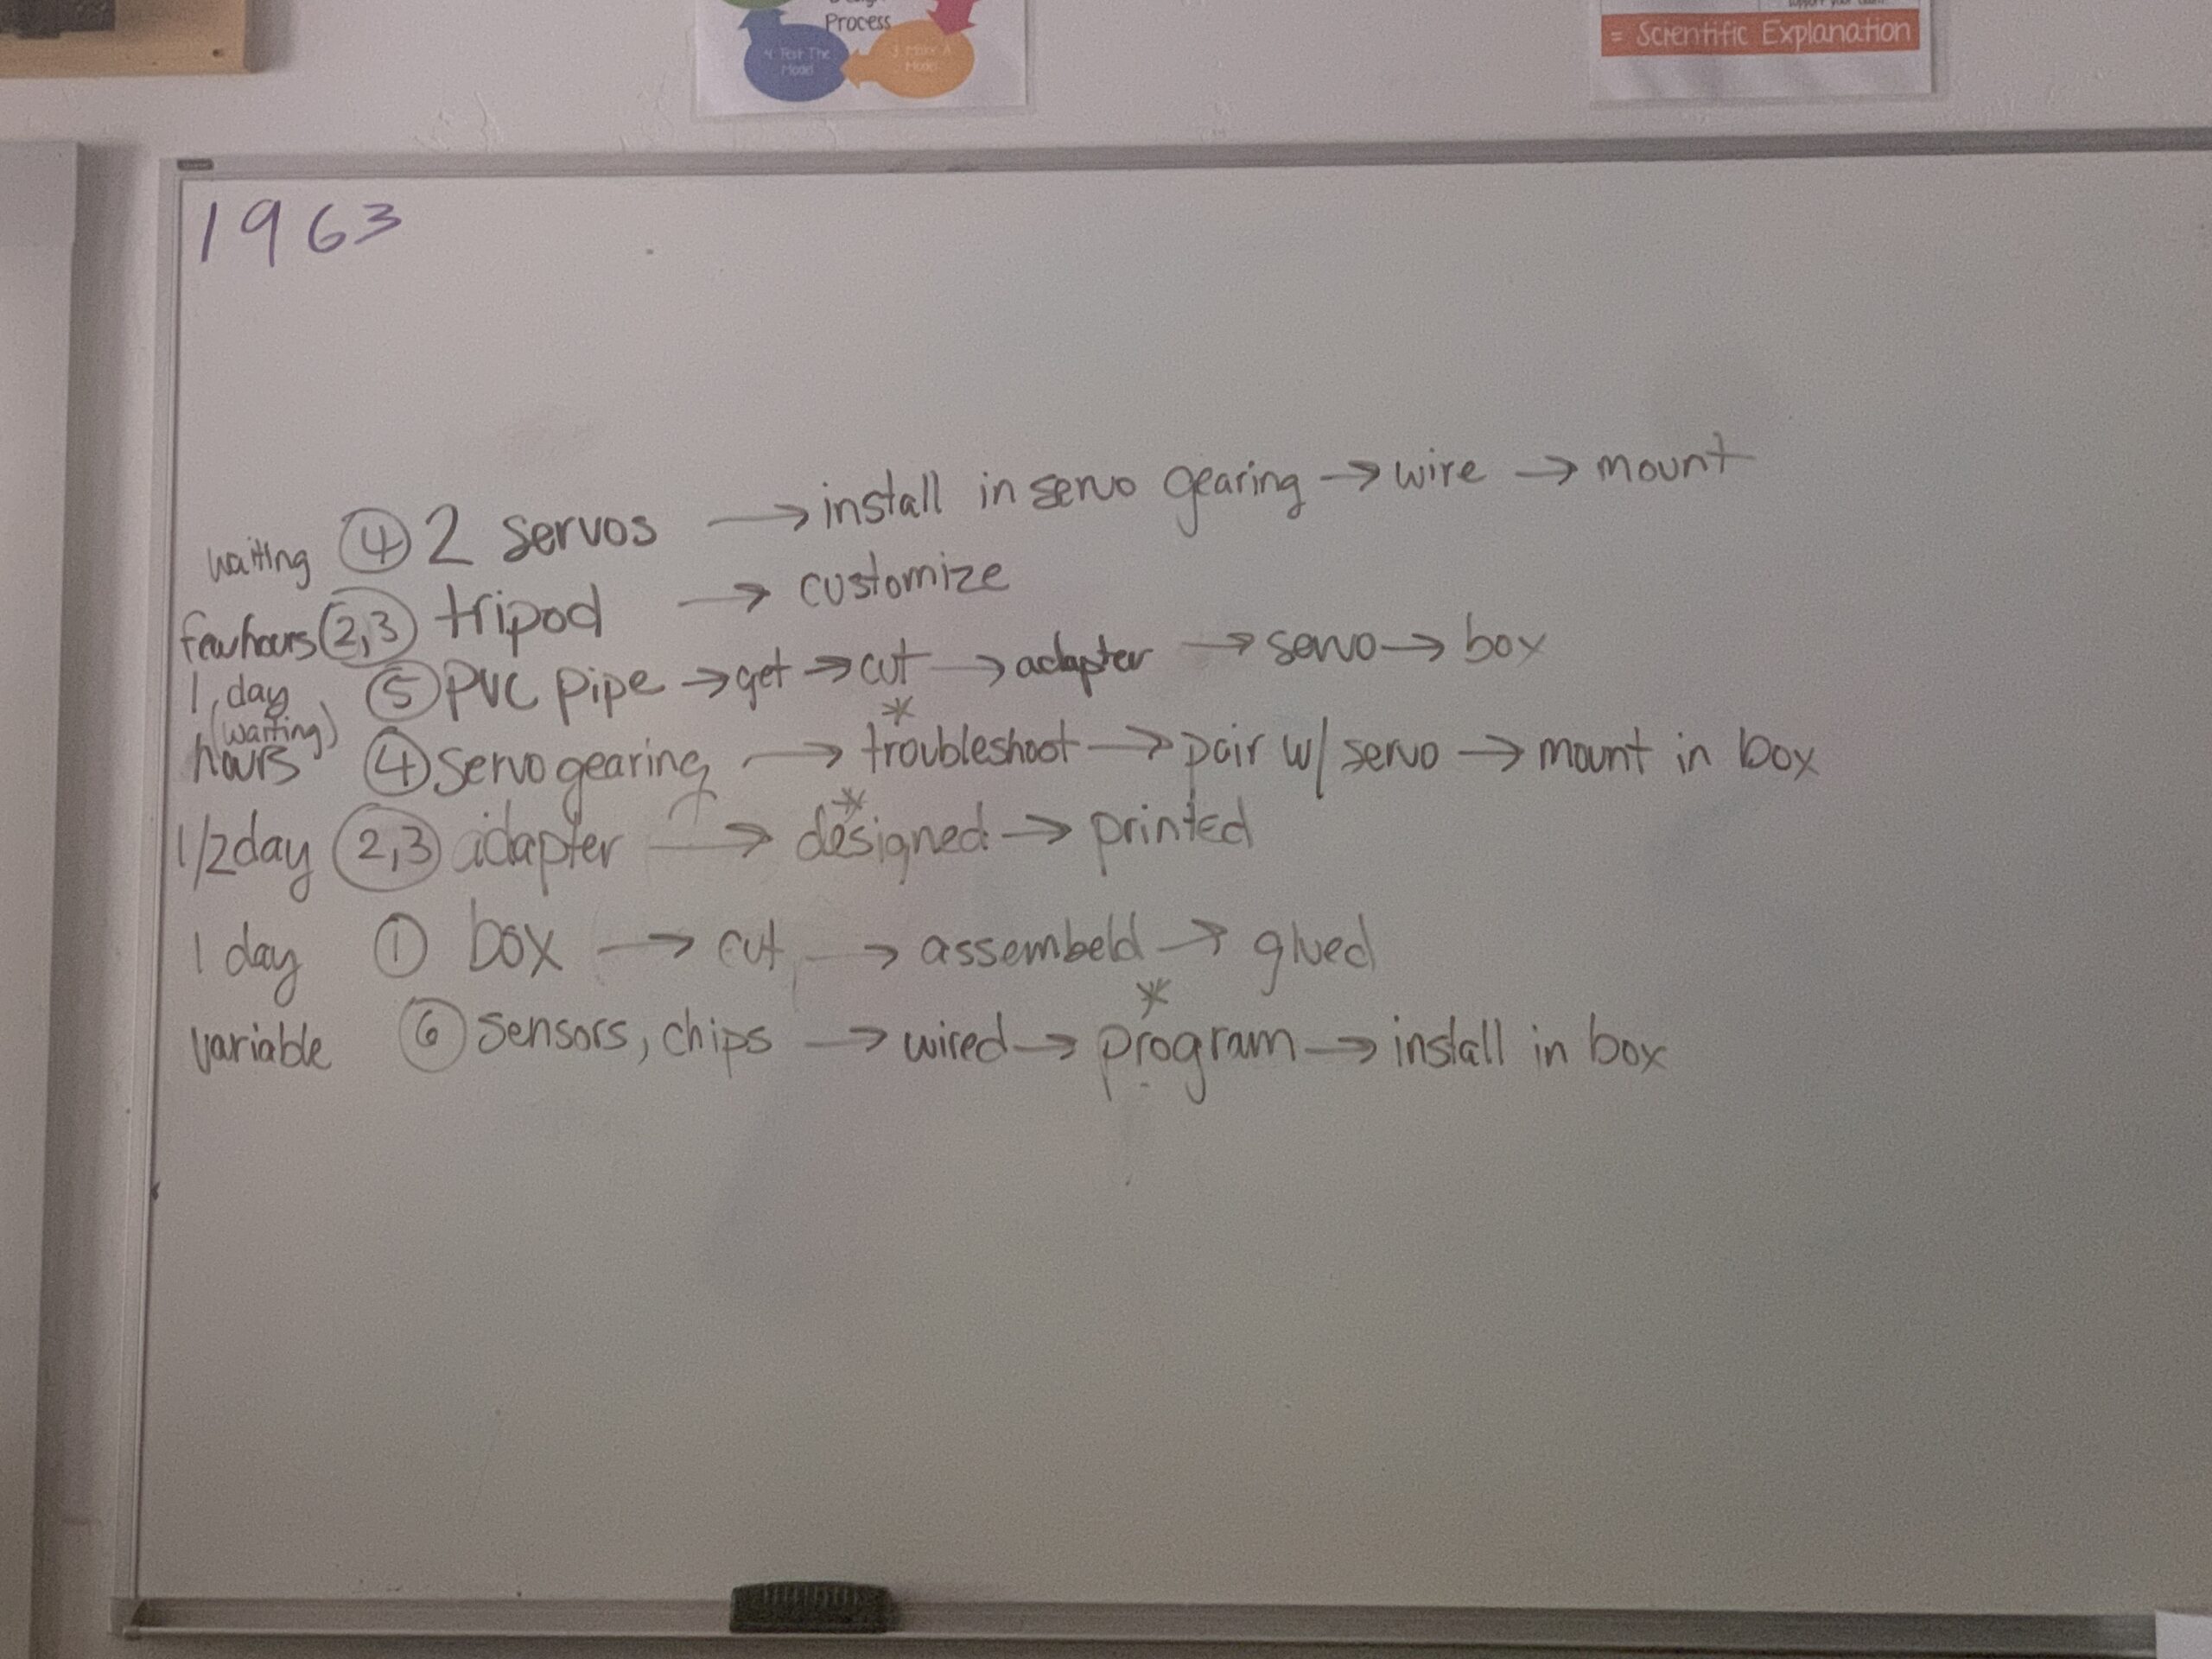 Process
4 Test The
Model
3 Make A
Model
= Scientific Explanation
1963
waiting ④ 2 servos → install in servo gearing → wire → mount
few hours (2,3) tripod → customize
1 day ⑤ PVC pipe → get → cut → adapter → servo → box
(waiting)
hours ④ servo gearing → troubleshoot* → pair w/ servo → mount in box
1/2 day (2,3) adapter → designed* → printed
1 day ① box → cut → assembeld → glued
variable ⑥ sensors, chips → wired → program* → install in box